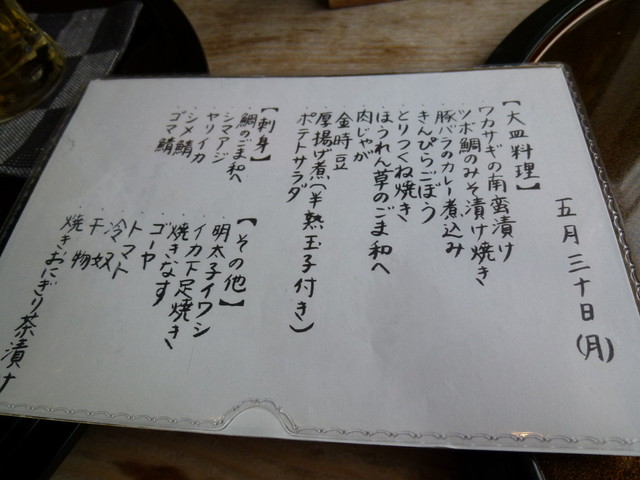 五月三十日(月)
【大皿料理】
ワカサギの南蛮漬け
ツボ鯛のみそ漬け焼き
豚バラのカレー煮込み
きんぴらごぼう
とりつくね焼き
ほうれん草のごま和へ
肉じゃが
金時豆
厚揚げ煮(半熟玉子付き)
ポテトサラダ
【刺身】
鯛のごま和へ
シマアジ
ヤリイカ
シメ鯖
ゴマ鯖
【その他】
明太子イワシ
イカ下足焼き
焼きなす
ゴーヤ
トマト
冷奴
干物
焼きおにぎり茶漬け